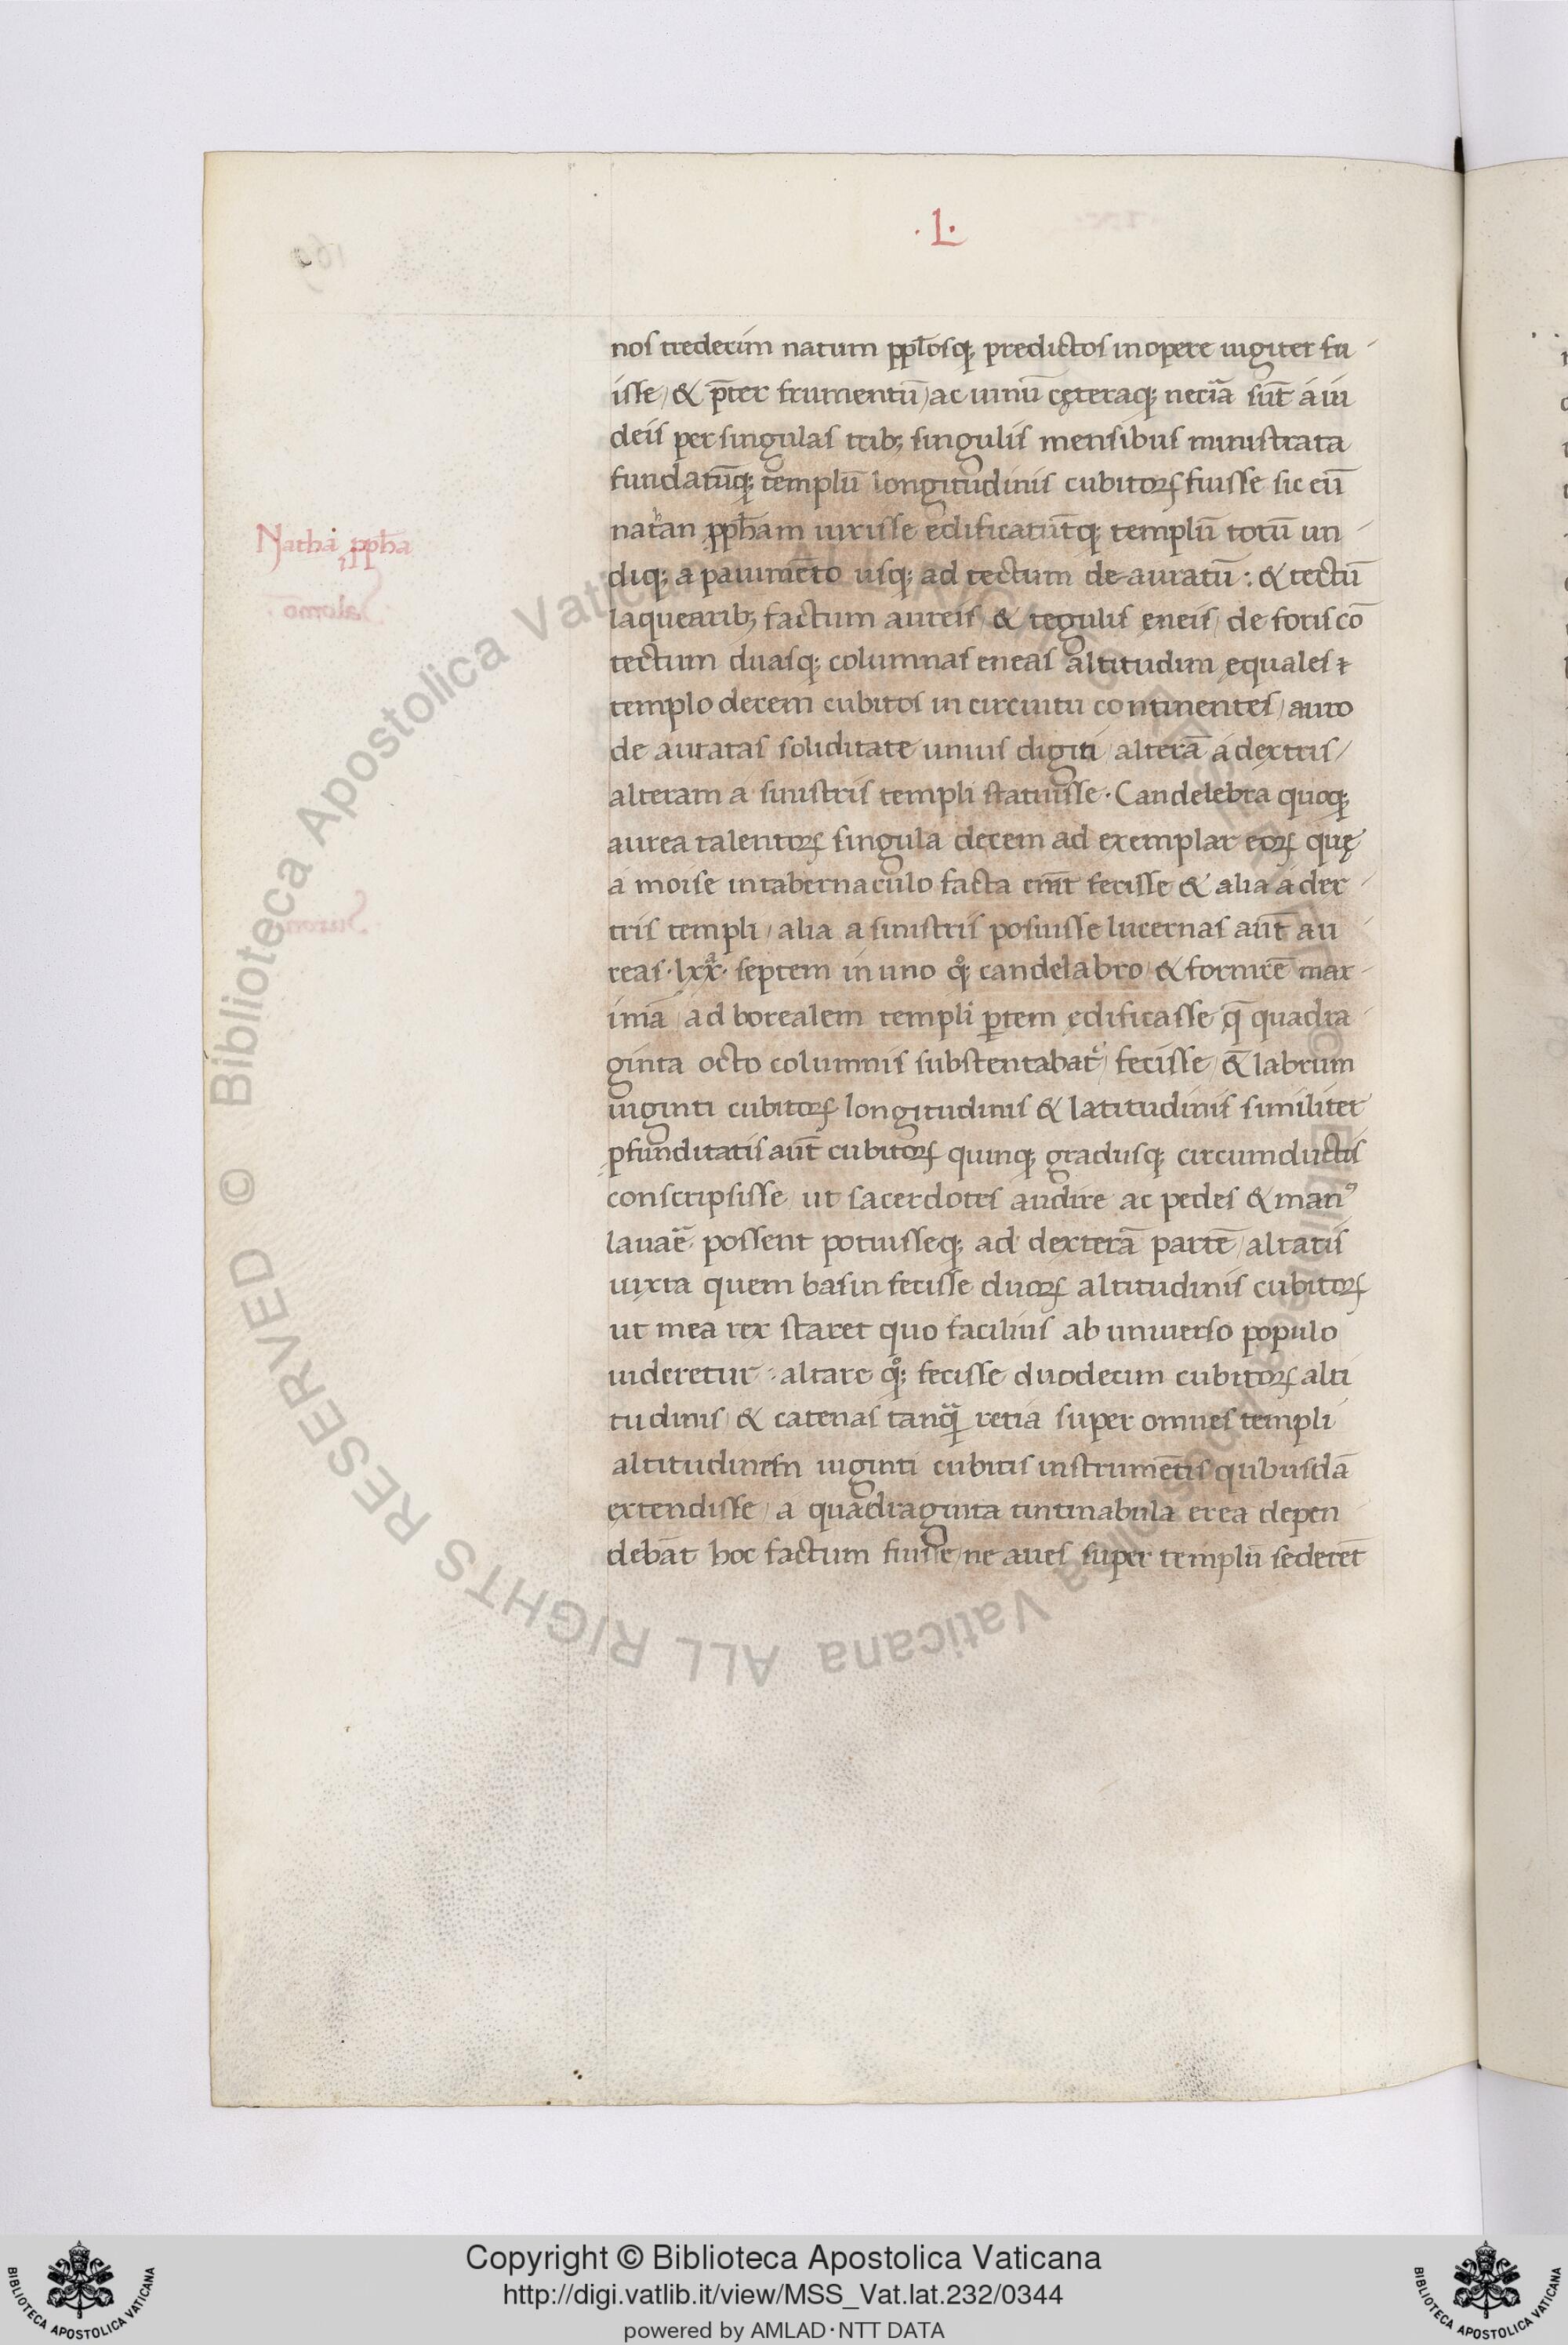 ·L·
nos tredecim natum pp̅losq; predictos in opere iugiter fu
isse / & p̅ter frumentū / ac uinū cęteraq; necīa sūt á iu
deis per singulas trib; singulis mensibus ministrata
fundatūq; templū longitudinis cubitoꝝ fuisse sic eū
Nathā ꝓph̄a
natan ꝓph̄am iuxisse edificatūtq; templū totū un
diq; a pauimēto usq; ad tectum de auratū : & tectū
laquearib; factum aureis / & tegulis eneis / de foris cō
tectum duasq; columnas eneas altitudini equales
templo decem cubitos in circuitu continentes / auro
de auratas soliditate unius digiti / alterā a dextris /
alteram a sinistris templi statuisse · Candelebra quoq;
aurea talentoꝝ singula decem ad exemplar eoꝝ quę
a moise in tabernaculo facta erāt fecisse & alia a dex
tris templi / alia a sinistris posuisse lucernas aūt au
reas · lxx · septem in uno qͦ; candelabro / & formicē max
imā / ad borealem templi ꝑtem edificasse q̄ quadra
ginta octo columnis substentabat᷑ / fecisse / & labrum
uiginti cubitoꝝ longitudinis & latitudinis similiter
ꝓfunditatis aūt cubitoꝝ quinq; gradusq; circumductis
conscripsisse / ut sacerdotes audire ac pedes & manꝰ
lauar̄e possent potuisseq; ad dexterā partē / altaris
iuxta quem basin fecisse duoꝝ altitudinis cubitoꝝ
ut mea rex staret quo facilius ab uniuerso populo
uideretur · altare qͦ; fecisse duodecim cubitoꝝ alti
tudinis / & catenas tanq̄ retia super omnes templi
altitudinem uiginti cubitis instrumētis quibusdā
extendisse / a quadraginta tintinabula erea depen
debāt hoc factum fuisse / ne aues super templū sederēt
Copyright © Biblioteca Apostolica Vaticana
http://digi.vatlib.it/view/MSS_Vat.lat.232/0344
powered by AMLAD·NTT DATA